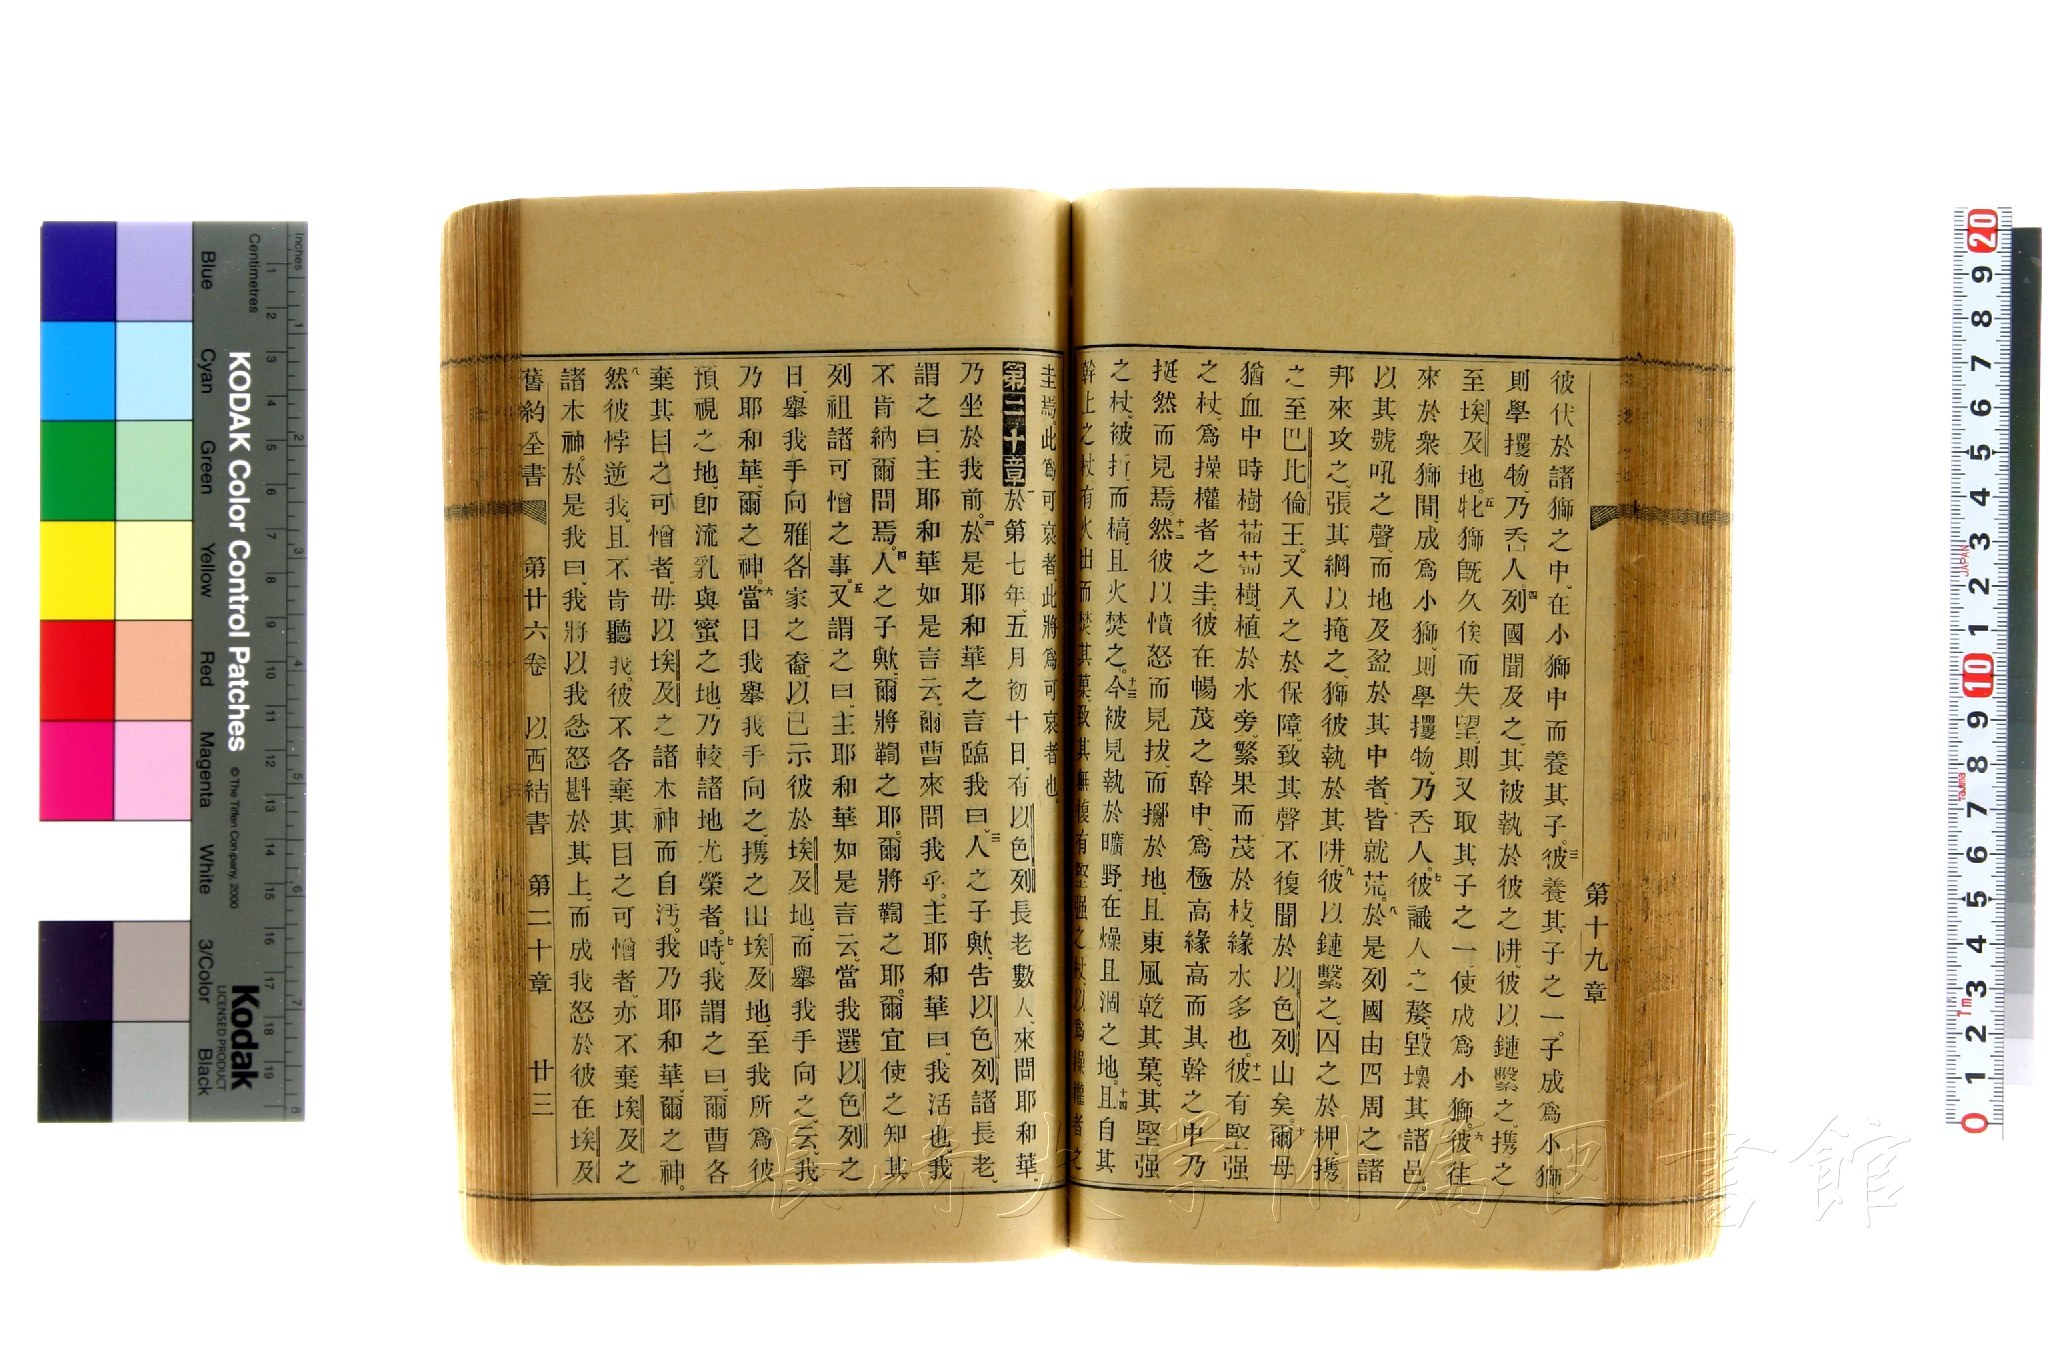 第十九章
彼伏於諸獅之中、在小獅中而養其子。三彼養其子之一。子成爲小獅、
則學攫物、乃呑人。四列國聞及之、其被執於彼之阱。彼以鏈繫之、携之
至埃及地。五牝獅旣久俟而失望、則又取其子之一、使成爲小獅。六彼往
來於衆獅間、成爲小獅、則學攫物、乃呑人。七彼識人之嫠、毀壞其諸邑。
以其號吼之聲、而地及盈於其中者、皆就荒。八於是列國由四周之諸
邦來攻之、張其綱以掩之、獅彼執於其阱。九彼以鏈繫之、囚之於柙、携
之至巴比倫王。又入之於保障、致其聲不復聞於以色列山矣。十爾母
猶血中時樹葡萄樹、植於水旁、繁果而茂於枝、緣水多也。十一彼有堅强
之杖、爲操權者之圭、彼在暢茂之幹中、爲極高緣高而其幹之中乃
挺然而見焉。十二然彼以憤怒而見拔、而擲於地、且東風乾其菓、其堅强
之杖、被折、而槁、且火焚之。十三今被見執於曠野、在燥且涸之地。十四且自其
幹上之杖、有火出而焚其菓、致其無復有堅强之杖、以爲操權者之
圭焉。此爲可哀者、此將爲可哀者也。
第二十章 一於第七年、五月初十日、有以色列長老數人、來問耶和華、
乃坐於我前。二於是耶和華之言臨我曰、三人之子歟、告以色列諸長老、
謂之曰、主耶和華如是言云、爾曹來問我乎。主耶和華曰、我活也、我
不肯納爾問焉。四人之子歟、爾將鞫之耶。爾將鞫之耶。爾宜使之知其
列祖諸可憎之事。五又謂之曰、主耶和華如是言云、當我選以色列之
日、舉我手向雅各家之裔、以已示彼於埃及地、而舉我手向之、云、我
乃耶和華、爾之神。六當日我舉我手向之、携之出埃及地、至我所爲彼
預視之地、卽流乳與蜜之地、乃較諸地尤榮者。七時、我謂之曰、爾曹各
棄其目之可憎者、毋以埃及之諸木神而自汚。我乃耶和華、爾之神。
八然彼悖逆我、且不肯聽我。彼不各棄其目之可憎者、亦不棄埃及之
諸木神。於是我曰、我將以我忿怒斟於其上、而成我怒於彼在埃及
舊約全書 第廿六卷 以西結書 第二十章 廿三
長崎大学附属図書館
KODAK Color Control Patches
© The Tiffen Company, 2000
Kodak
LICENSED PRODUCT
Inches
Centimetres
Blue Cyan Green Yellow Red Magenta White 3/Color Black
JAPAN
Tajima